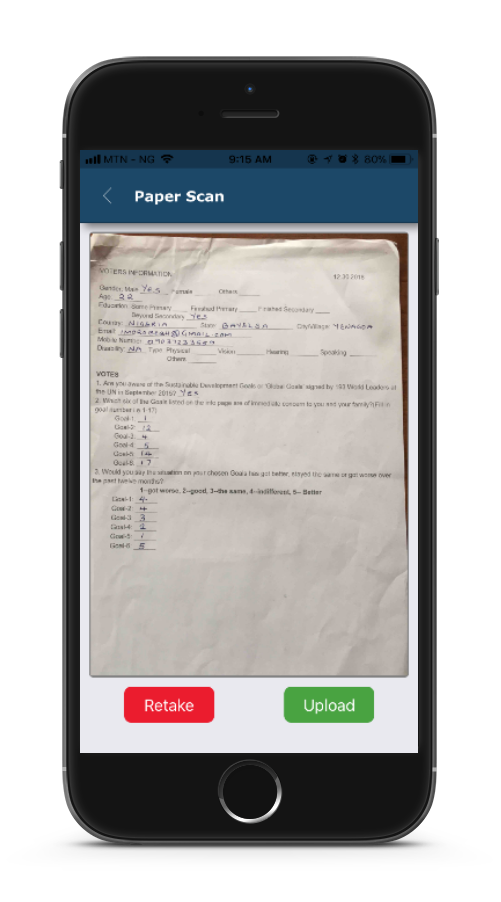 MTN - NG 9:15 AM 80%
Paper Scan
VOTERS INFORMATION 12.30.2016
Gender: Male Yes Female Others
Age: 22
Education: Some Primary Finished Primary Finished Secondary
Beyond Secondary Yes
Country: NIGERIA State: BAYELSA City/Village: YENAGOA
Email:
Mobile Number:
Disability: NA Type: Physical Vision Hearing Speaking
Others
VOTES
1. Are you aware of the Sustainable Development Goals or 'Global Goals' signed by 193 World Leaders at
the UN in September 2015? Yes
2. Which six of the Goals listed on the info page are of immediate concern to you and your family? (Fill in
goal number i.e 1-17)
Goal-1: 1
Goal-2: 12
Goal-3: 4
Goal-4: 5
Goal-5: 14
Goal-6: 17
3. Would you say the situation on your chosen Goals has got better, stayed the same or got worse over
the past twelve months?
1--got worse, 2--good, 3--the same, 4--indifferent, 5-- Better
Goal-1: 4
Goal-2: 4
Goal-3: 3
Goal-4: 2
Goal-5: 1
Goal-6: 5
Retake Upload